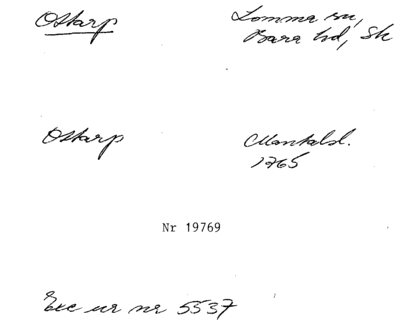 Ostarp Lomma sn,
Bara hd, Sk
Ostarp Mantalsl.
1765
Nr 19769
Exc ur nr 5537